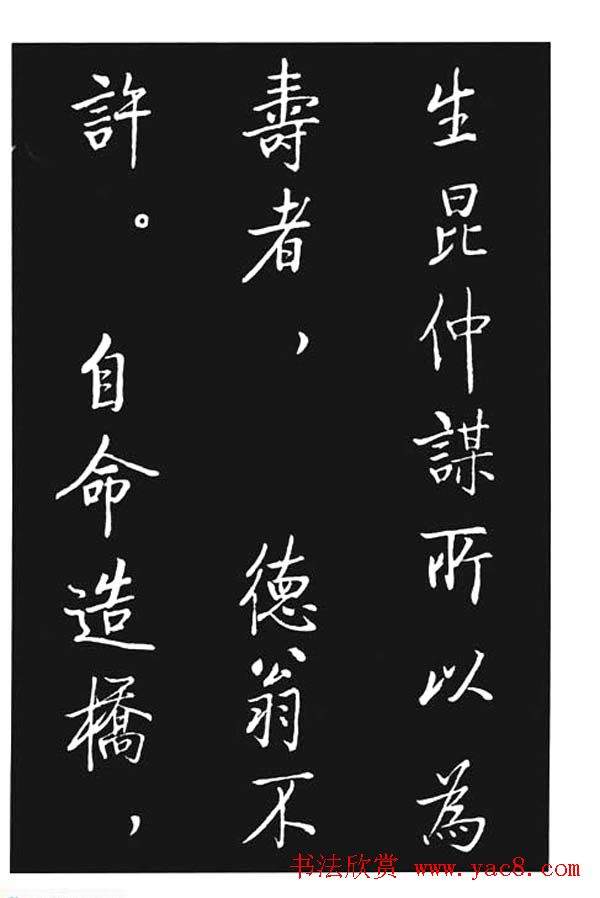 生昆仲謀所以為
壽者，德翁不
許。自命造橋，
书法欣赏 www.yac8.com